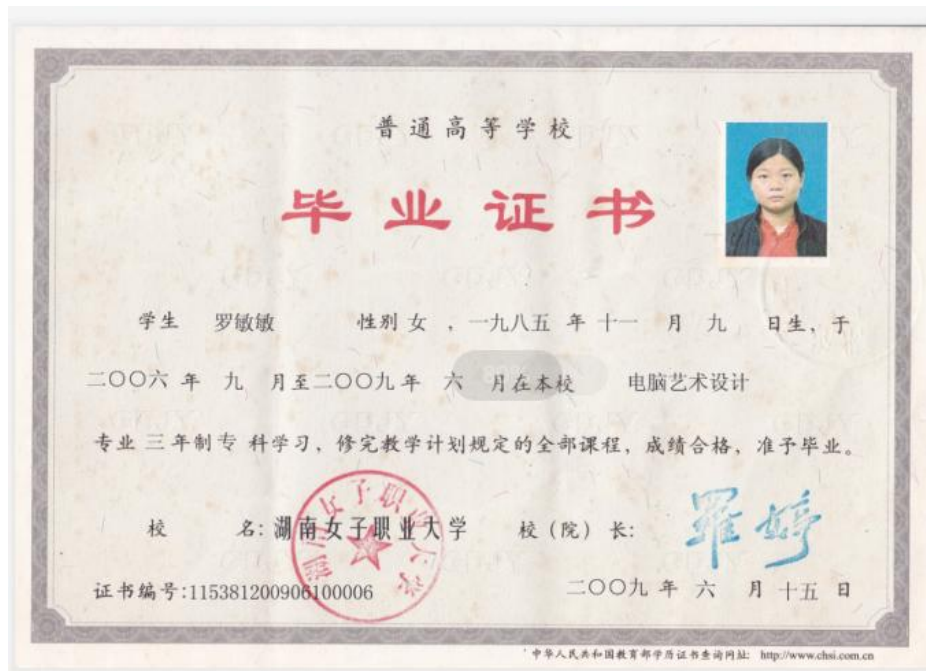 普通高等学校
毕业证书
学生 罗敏敏 性别 女 , 一九八五 年 十一 月 九 日生, 于
二〇〇六 年 九 月至二〇〇九 年 六 月在本校 电脑艺术设计
专业 三 年制 专 科学习, 修完教学计划规定的全部课程, 成绩合格, 准予毕业。
校 名: 湖南女子职业大学 校(院)长: 罗婷
湖南女子职业大学
证书编号:115381200906100006 二〇〇九 年 六 月 十五 日
中华人民共和国教育部学历证书查询网址: http://www.chsi.com.cn